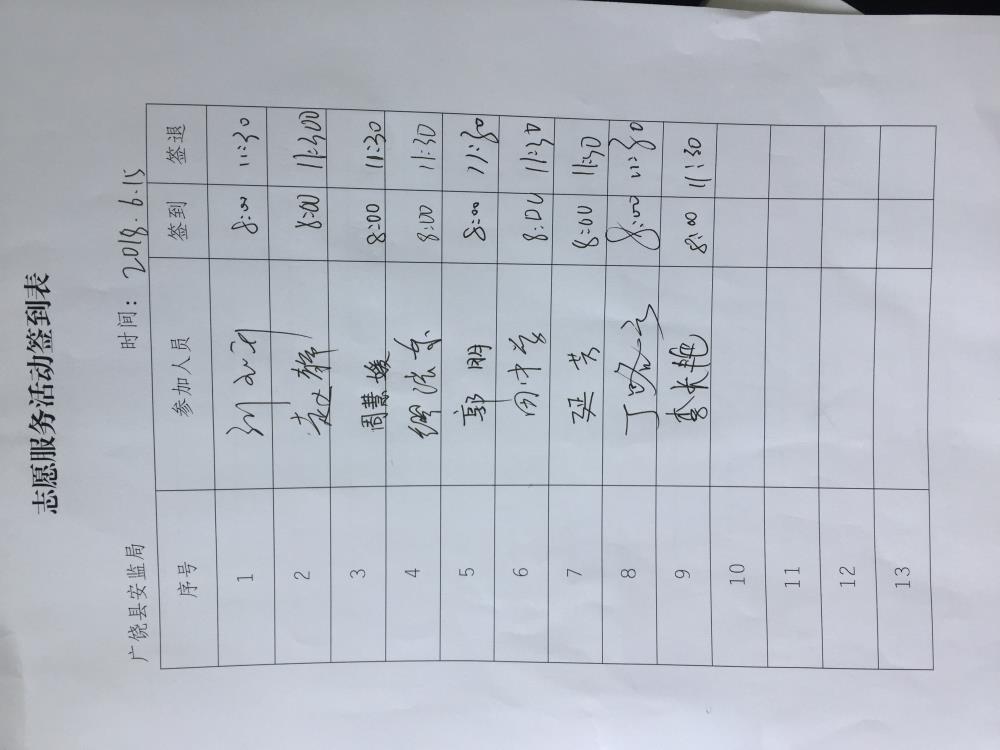 志愿服务活动签到表
广饶县安监局 时间：2018.6.15
序号 参加人员 签到 签退
1 8:00 11:30
2 赵静 8:00 11:300
3 周慧媛 8:00 11:30
4 8:00 11:30
5 郭朋 8:00 11:30
6 田中兰 8:00 11:30
7 延芳 8:00 11:30
8 8:00 11:30
9 李长艳 8:00 11:30
10
11
12
13